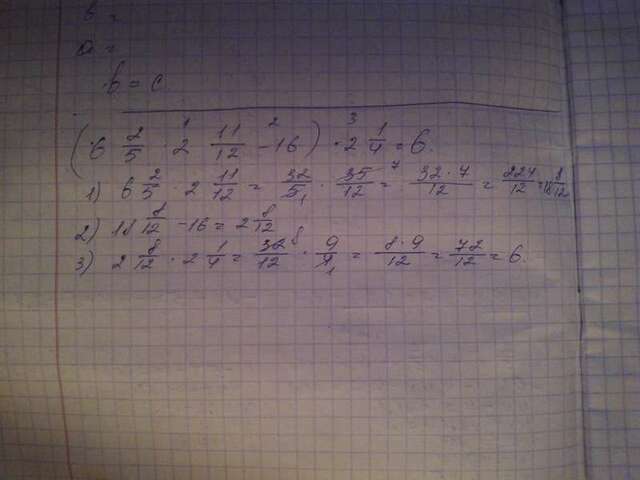 b =
a =
b = c
(6 2/5 · 2 11/12 - 16) · 2 1/4 = 6.
1) 6 2/5 · 2 11/12 = 32/5 · 35/12 = 32·7/12 = 224/12 = 18 8/12
2) 18 8/12 - 16 = 2 8/12
3) 2 8/12 · 2 1/4 = 32/12 · 9/4 = 8·9/12 = 72/12 = 6.